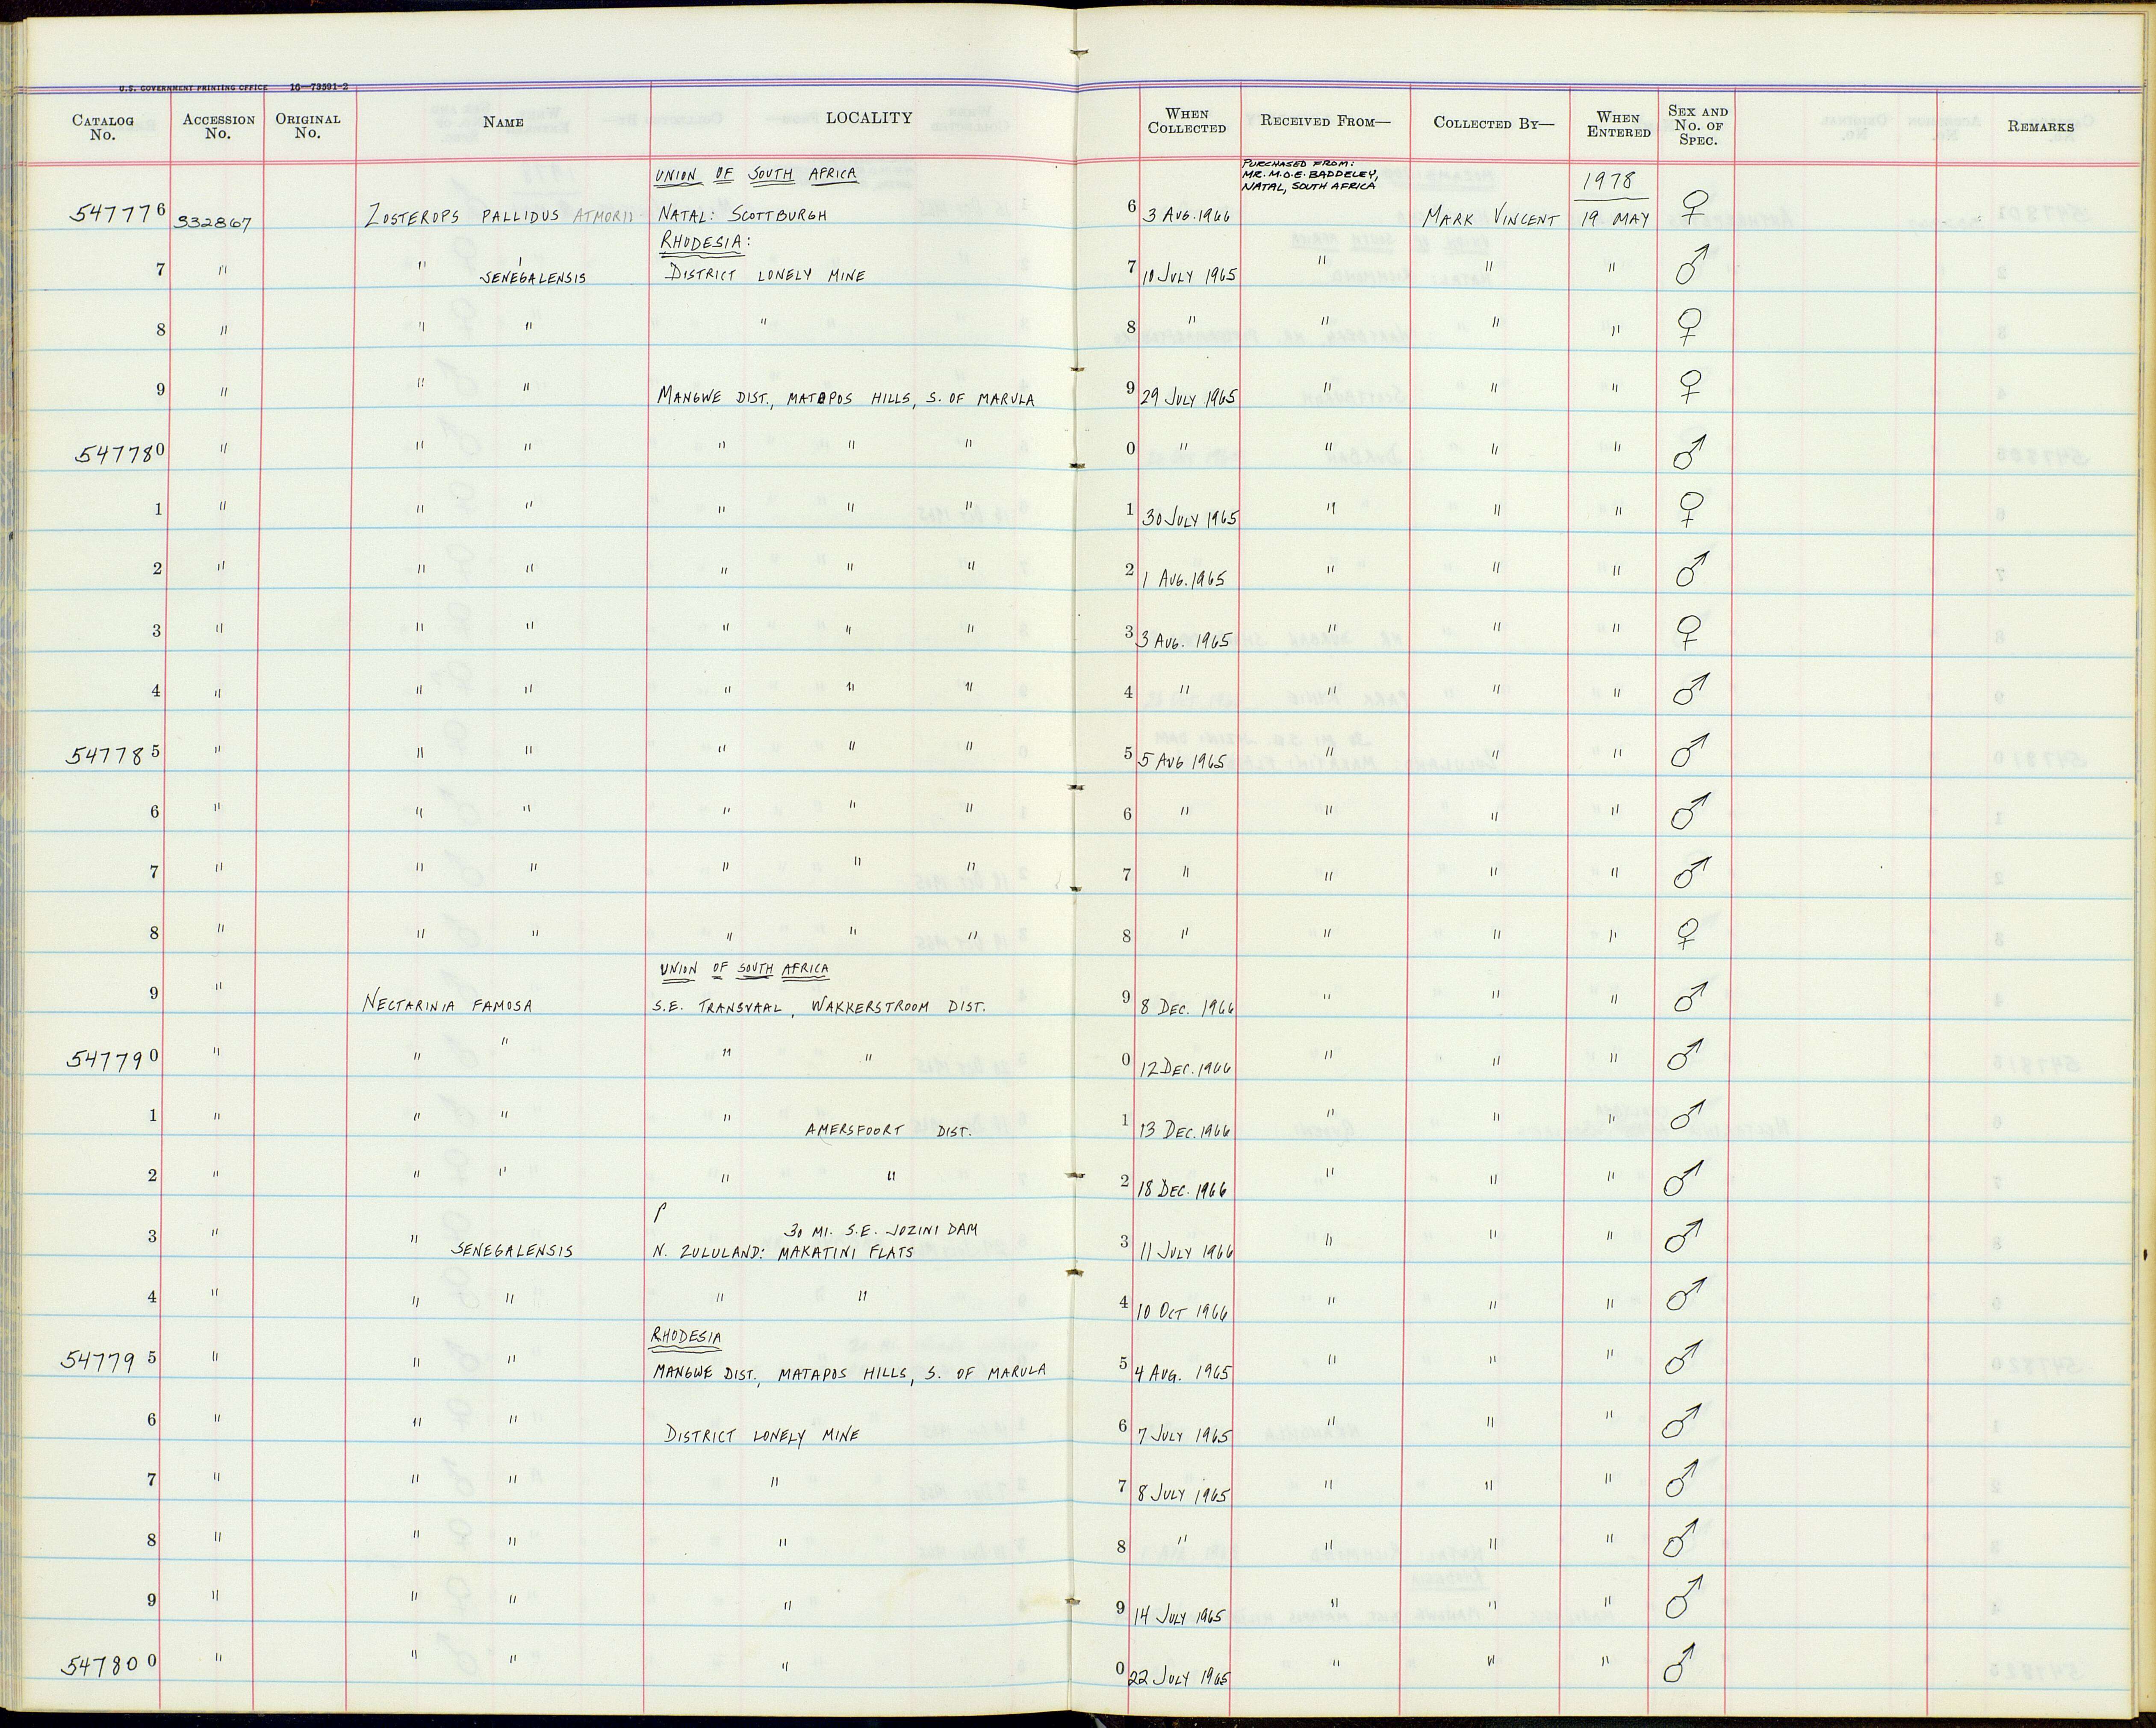 U.S. GOVERNMENT PRINTING OFFICE 16—73591-2
CATALOG No. ACCESSION No. ORIGINAL No. NAME LOCALITY WHEN COLLECTED RECEIVED FROM— COLLECTED BY— WHEN ENTERED SEX AND No. OF SPEC. REMARKS
UNION OF SOUTH AFRICA PURCHASED FROM: MR. M.O.E. BADDELEY, NATAL, SOUTH AFRICA 1978
547776 332867 ZOSTEROPS PALLIDUS ATMORII NATAL: SCOTTBURGH 6 3 AUG. 1966 MARK VINCENT 19 MAY ♀
RHODESIA:
7 " " SENEGALENSIS DISTRICT LONELY MINE 7 10 JULY 1965 " " " ♂
8 " " " " 8 " " " " ♀
9 " " " MANGWE DIST., MATOPOS HILLS, S. OF MARULA 9 29 JULY 1965 " " " ♀
547780 " " " " " " 0 " " " " ♂
1 " " " " " " 1 30 JULY 1965 " " " ♀
2 " " " " " " 2 1 AUG. 1965 " " " ♂
3 " " " " " " 3 3 AUG. 1965 " " " ♀
4 " " " " " " 4 " " " " ♂
547785 " " " " " " 5 5 AUG 1965 " " " ♂
6 " " " " " " 6 " " " " ♂
7 " " " " " " 7 " " " " ♂
8 " " " " " " 8 " " " " ♀
UNION OF SOUTH AFRICA
9 " NECTARINIA FAMOSA S.E. TRANSVAAL, WAKKERSTROOM DIST. 9 8 DEC. 1966 " " " ♂
547790 " " " " " 0 12 DEC. 1966 " " " ♂
1 " " " " AMERSFOORT DIST. 1 13 DEC. 1966 " " " ♂
2 " " " " " 2 18 DEC. 1966 " " " ♂
30 MI. S.E. JOZINI DAM
3 " " SENEGALENSIS N. ZULULAND: MAKATINI FLATS 3 11 JULY 1966 " " " ♂
4 " " " " " 4 10 OCT 1966 " " " ♂
RHODESIA
547795 " " " MANGWE DIST., MATAPOS HILLS, S. OF MARULA 5 4 AUG. 1965 " " " ♂
6 " " " DISTRICT LONELY MINE 6 7 JULY 1965 " " " ♂
7 " " " " 7 8 JULY 1965 " " " ♂
8 " " " " 8 " " " " ♂
9 " " " " 9 14 JULY 1965 " " " ♂
547800 " " " " 0 22 JULY 1965 " " " ♂